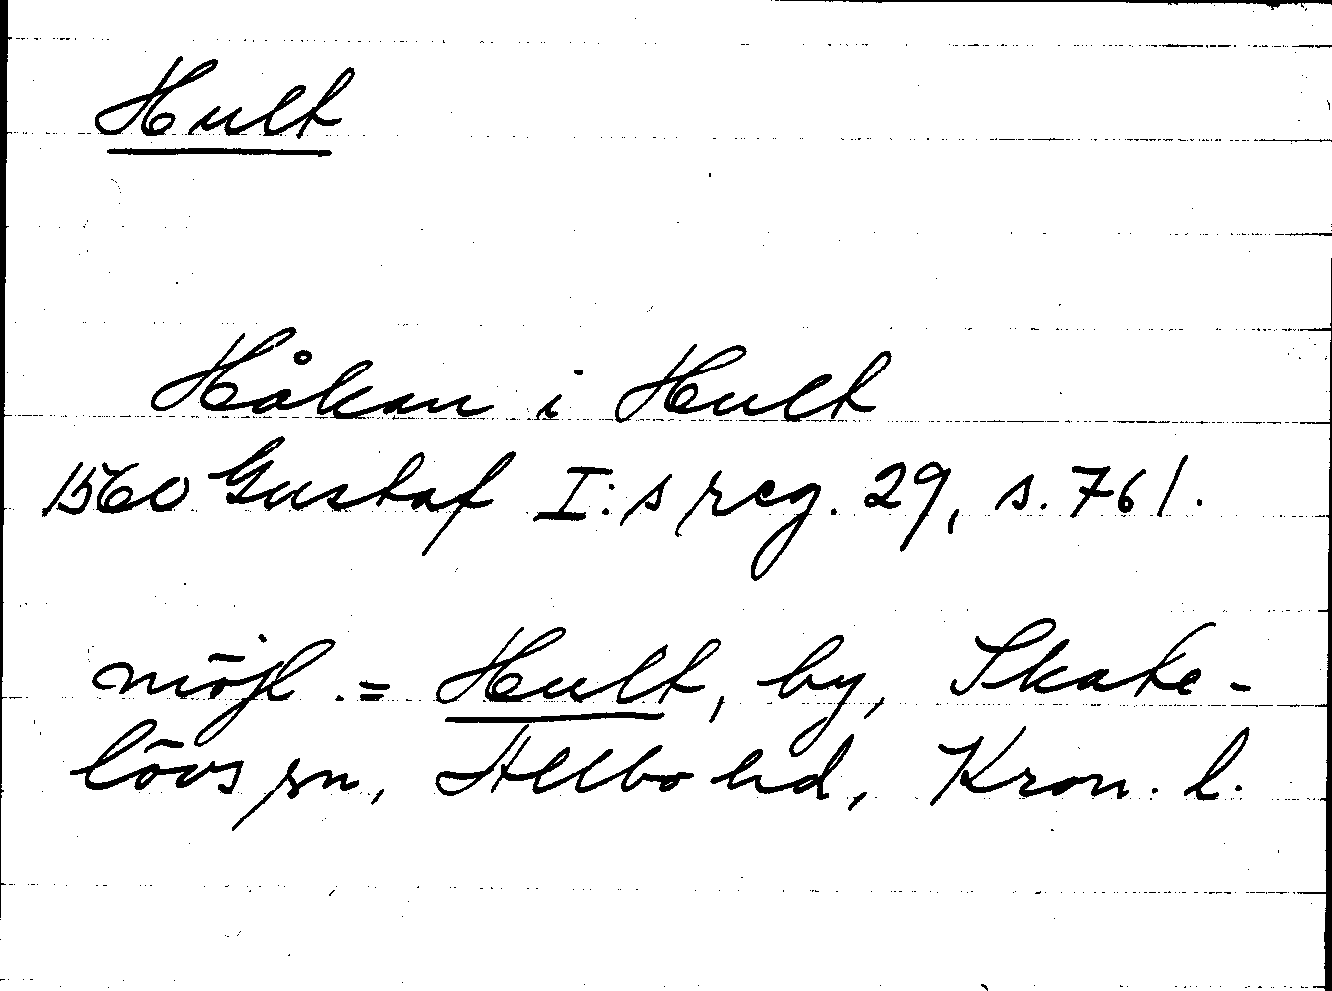 Hult
Håkan i Hult
1560 Gustaf I:s reg. 29, s. 761.
möjl. = Hult, by, Skate-
lövs sn, Allbo hd, Kron. l.